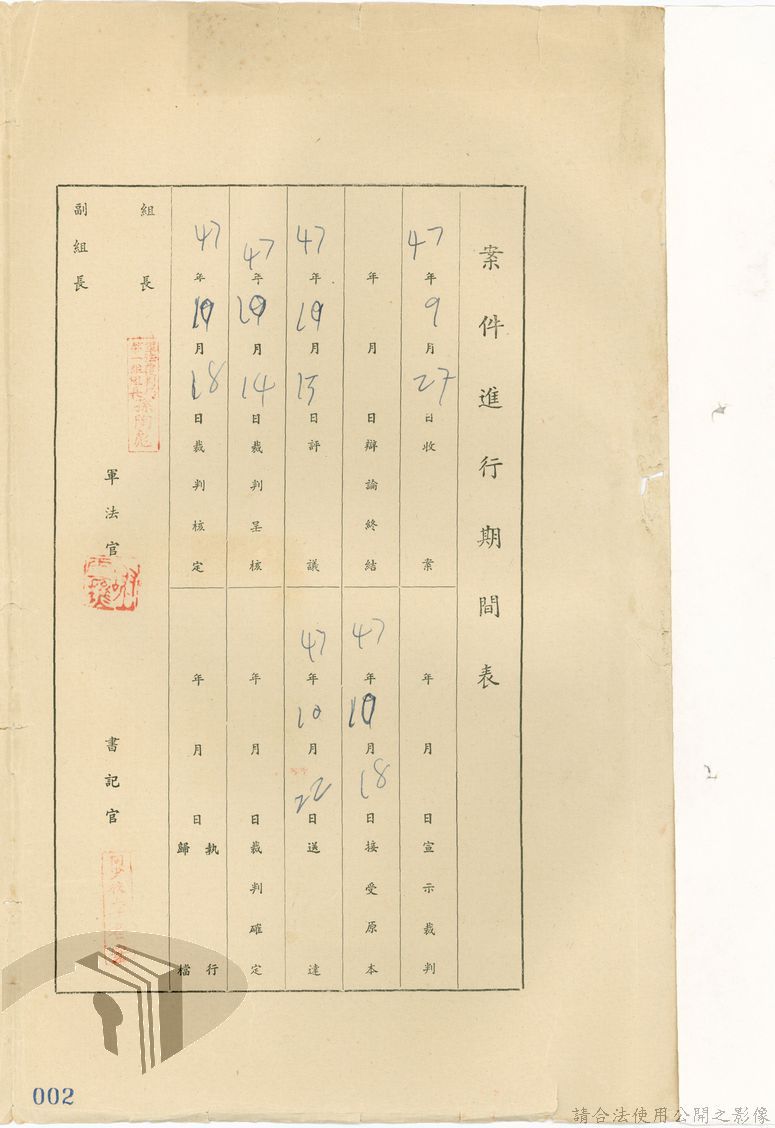 案件進行期間表
47年9月27日收案
年月日辯論終結
47年10月15日評議
47年10月14日裁判呈核
47年10月18日裁判核定
年月日宣示裁判
47年10月18日接受原本
47年10月22日送達
年月日裁判確定
年月日執行歸檔
組長
副組長
軍法官
書記官
002
請合法使用公開之影像